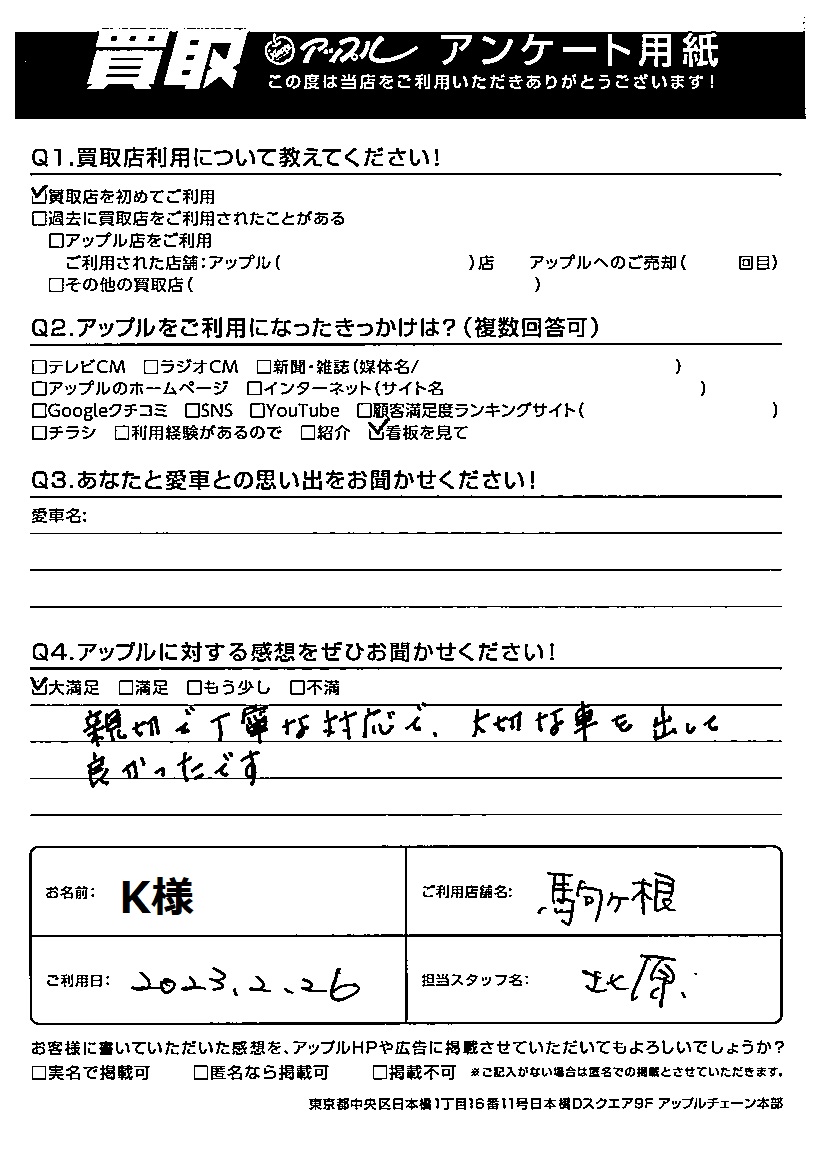 買取 アップル アンケート用紙
この度は当店をご利用いただきありがとうございます!
Q1.買取店利用について教えてください!
☑買取店を初めてご利用
□過去に買取店をご利用されたことがある
□アップル店をご利用
ご利用された店舗:アップル( )店 アップルへのご売却( 回目)
□その他の買取店( )
Q2.アップルをご利用になったきっかけは?(複数回答可)
□テレビCM □ラジオCM □新聞・雑誌(媒体名/ )
□アップルのホームページ □インターネット(サイト名 )
□Googleクチコミ □SNS □YouTube □顧客満足度ランキングサイト( )
□チラシ □利用経験があるので □紹介 ☑看板を見て
Q3.あなたと愛車との思い出をお聞かせください!
愛車名:
Q4.アップルに対する感想をぜひお聞かせください!
☑大満足 □満足 □もう少し □不満
親切で丁寧な対応で、大切な車を出して
良かったです
お名前: K様 ご利用店舗名: 駒ヶ根
ご利用日: 2023.2.26 担当スタッフ名: 北原
お客様に書いていただいた感想を、アップルHPや広告に掲載させていただいてもよろしいでしょうか?
□実名で掲載可 □匿名なら掲載可 □掲載不可 ※ご記入がない場合は匿名での掲載とさせていただきます。
東京都中央区日本橋1丁目16番11号日本橋Dスクエア9F アップルチェーン本部